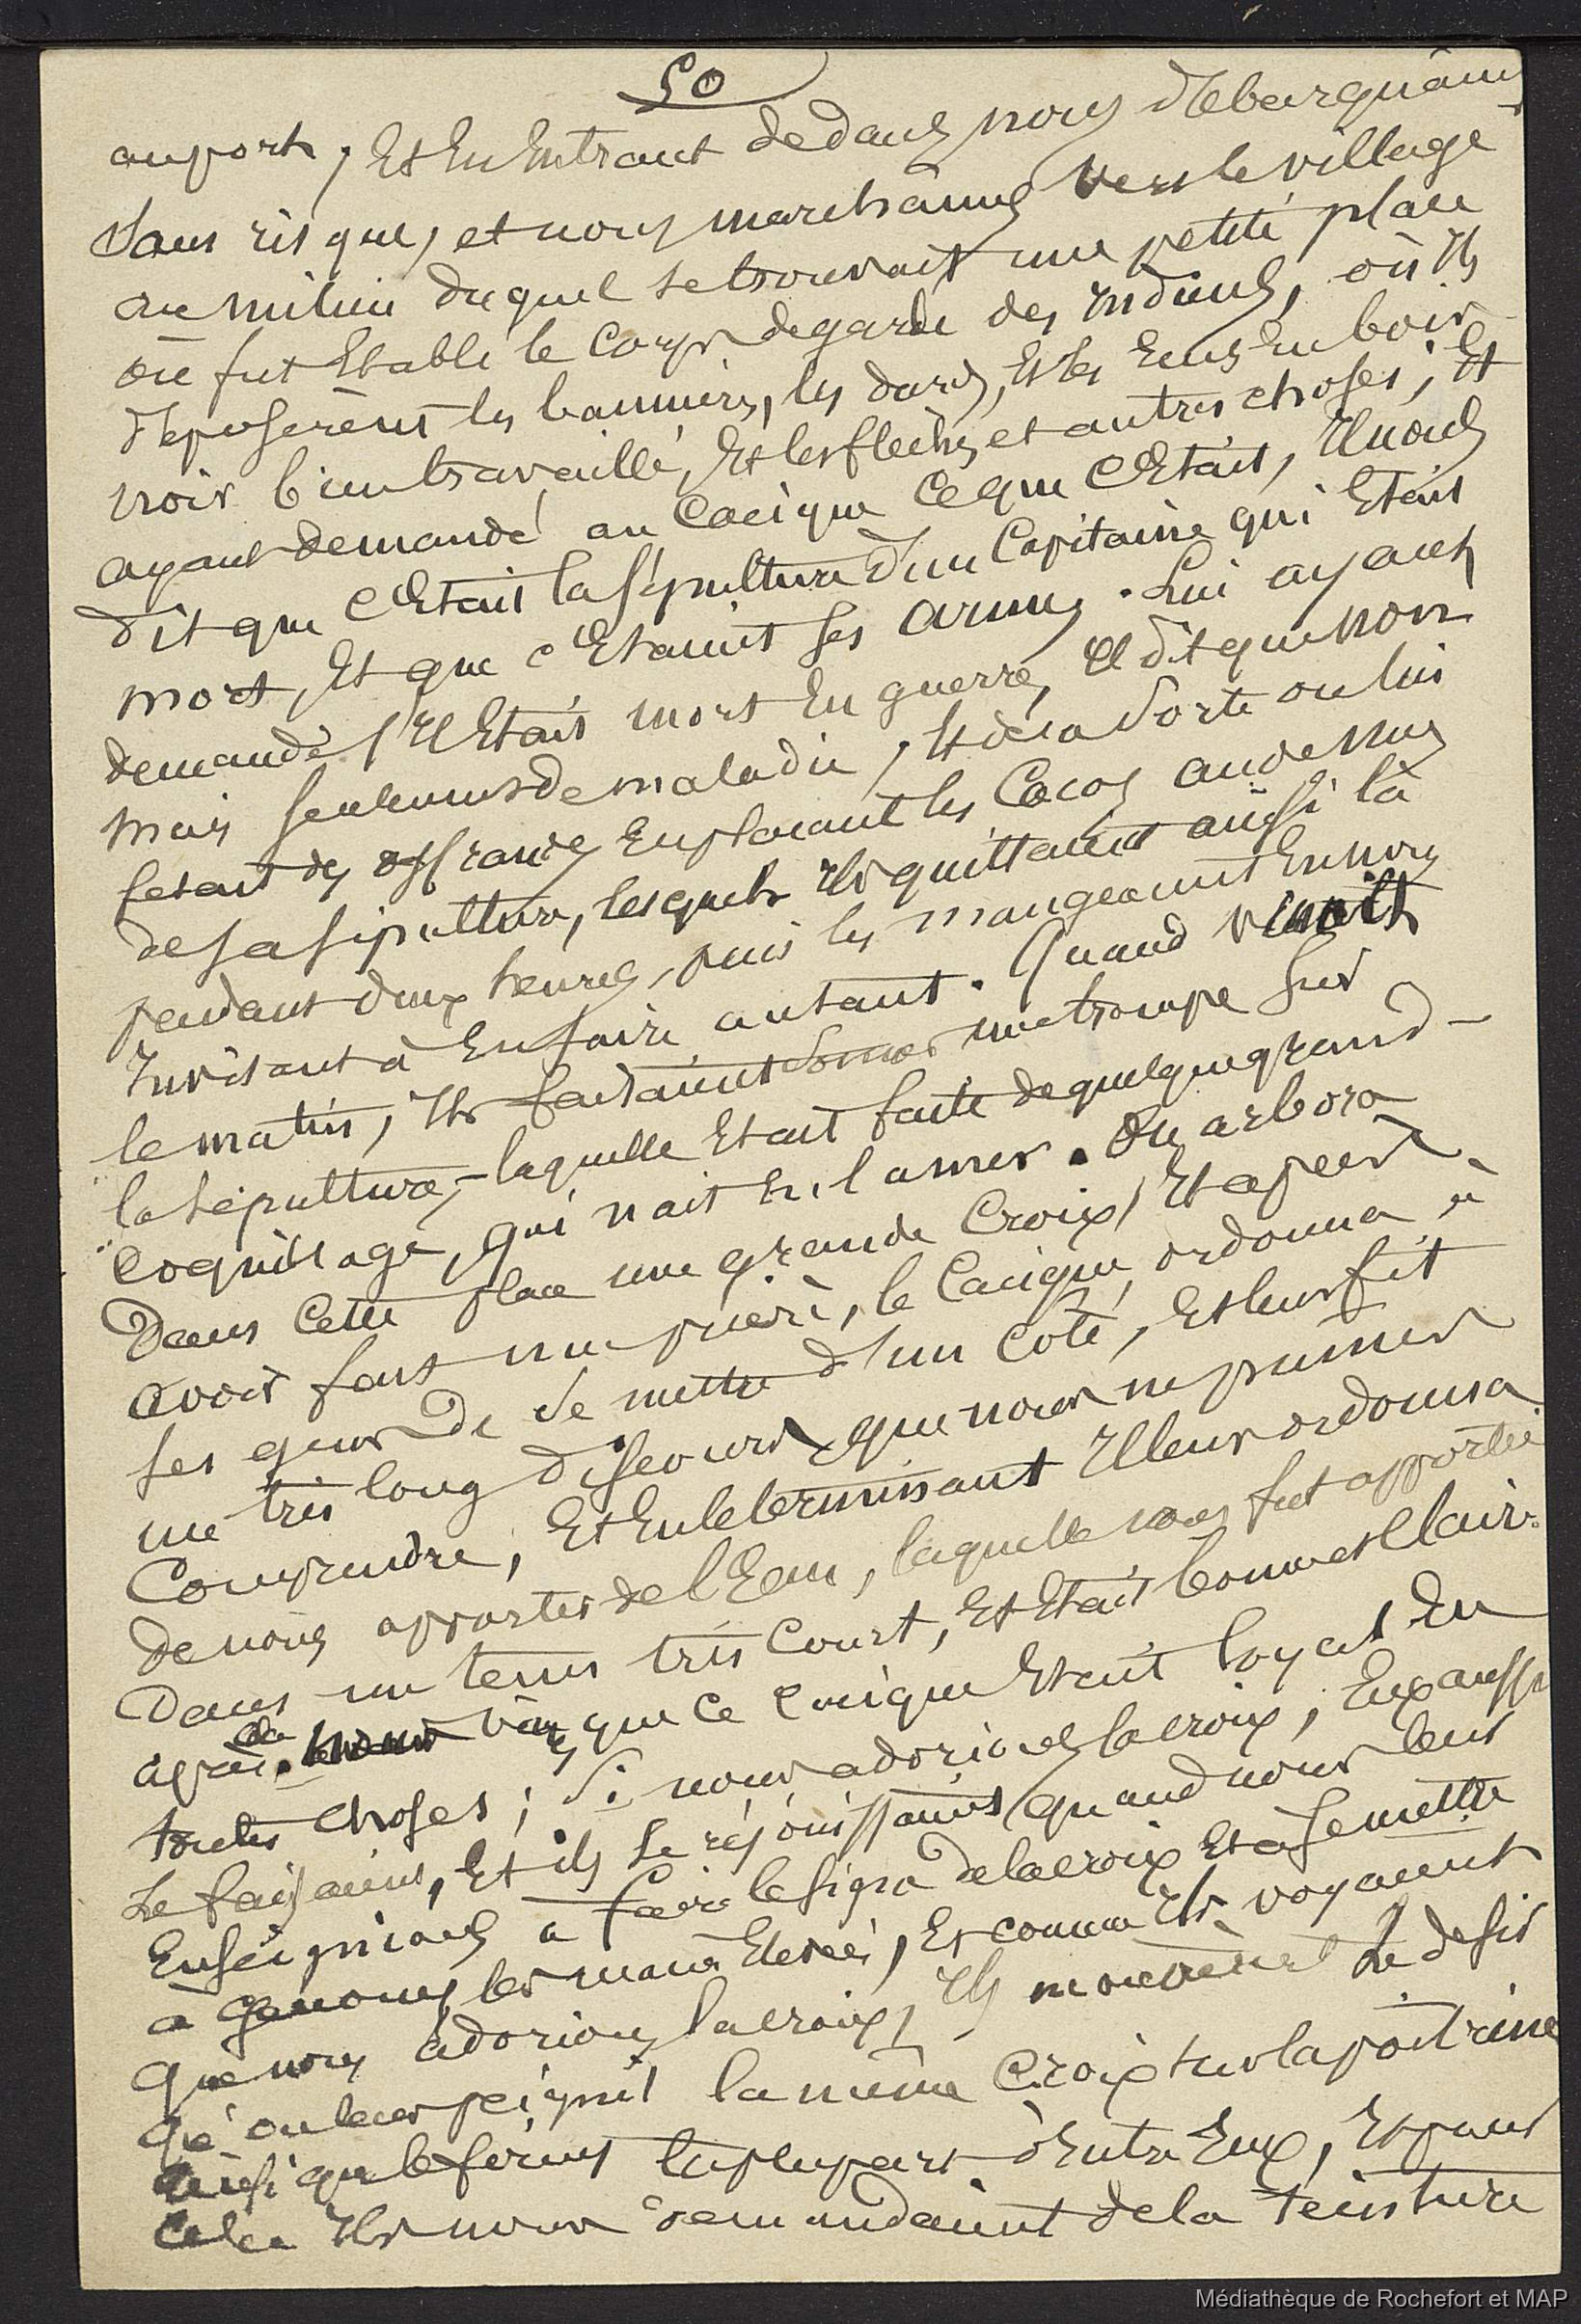 50
au port, Et En Entrant dedans nous débarquâmes
sans risque, et nous marchâmes vers le village
au milieu duquel se trouvait une petite place
où fut Etabli le Corps de garde des Indiens, où Ils
déposèrent les bannières, les dards, Et les Ecus En bois
noir bien travaillé, Et les flèches et autres choses; Et
ayant demandé au Cacique Ceque C'Etait, Il nous
dit que C'Etait la sépulture d'un Capitaine qui Etait
mort, Et que C'Etaient ses armes. Lui ayant
demandé s'Il Etait mort En guerre, Il dit que non
mais seulement de maladie, Et de la sorte on lui
fesait des offrandes En plaçant les Cocos au dessus
de sa sépulture, lesquels Ils quittaient aussi là
pendant deux heures, puis les mangeaient En nous
Invitant à En faire autant. Quand venait
le matin, Ils faisaient sonner une trompe sur
la sépulture, laquelle Etait faite de quelque grand
Coquillage, qui nait En la mer. On arbora
Dans Cette place une grande Croix, Et après
avoir fait une prière, le Cacique ordonna à
ses gens De se mettre d'un Coté, Et leur fit
un très long discours que nous ne pûmes
Comprendre, Et En le terminant Il leur ordonna
de nous apporter de l'Eau, laquelle nous fut apportée
Dans un tems très Court, Et Etait bonne et Claire.
après que Ce Cacique Etait loyal En
toutes choses; Si nous adorions la croix, Eux aussi
Le faisaient, Et ils se réjouissaient quand nous leur
Enseignions à faire le signe de la croix Et a se mettre
à genoux les mains Elevées, Et comme Ils voyaient
Que nous adorions la croix, Ils montrèrent Le desir
Qu'on leur peignit la même Croix sur la poitrine
ainsi que le firent la plupart d'Entre Eux, Et pour
Cela Ils nous demandaient de la teinture
Médiathèque de Rochefort et MAP